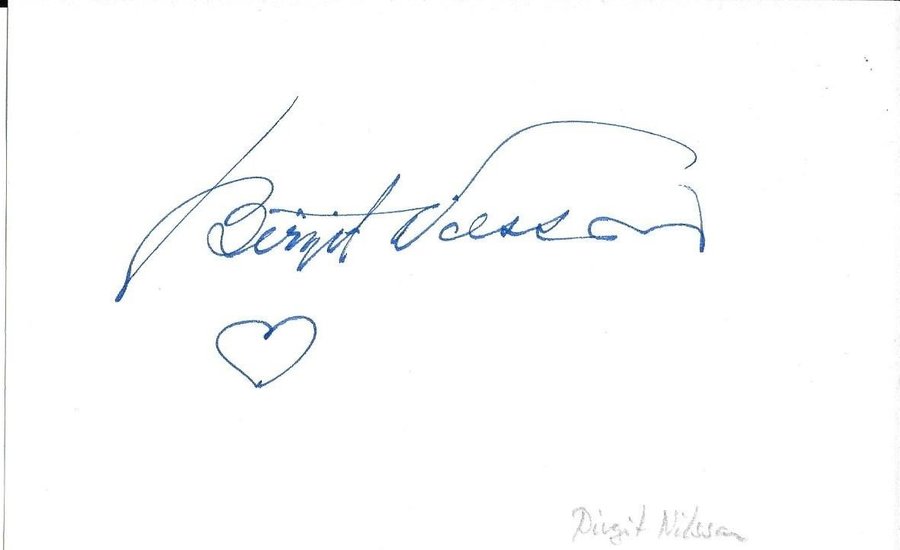 Birgit Nilsson
Birgit Nilsson